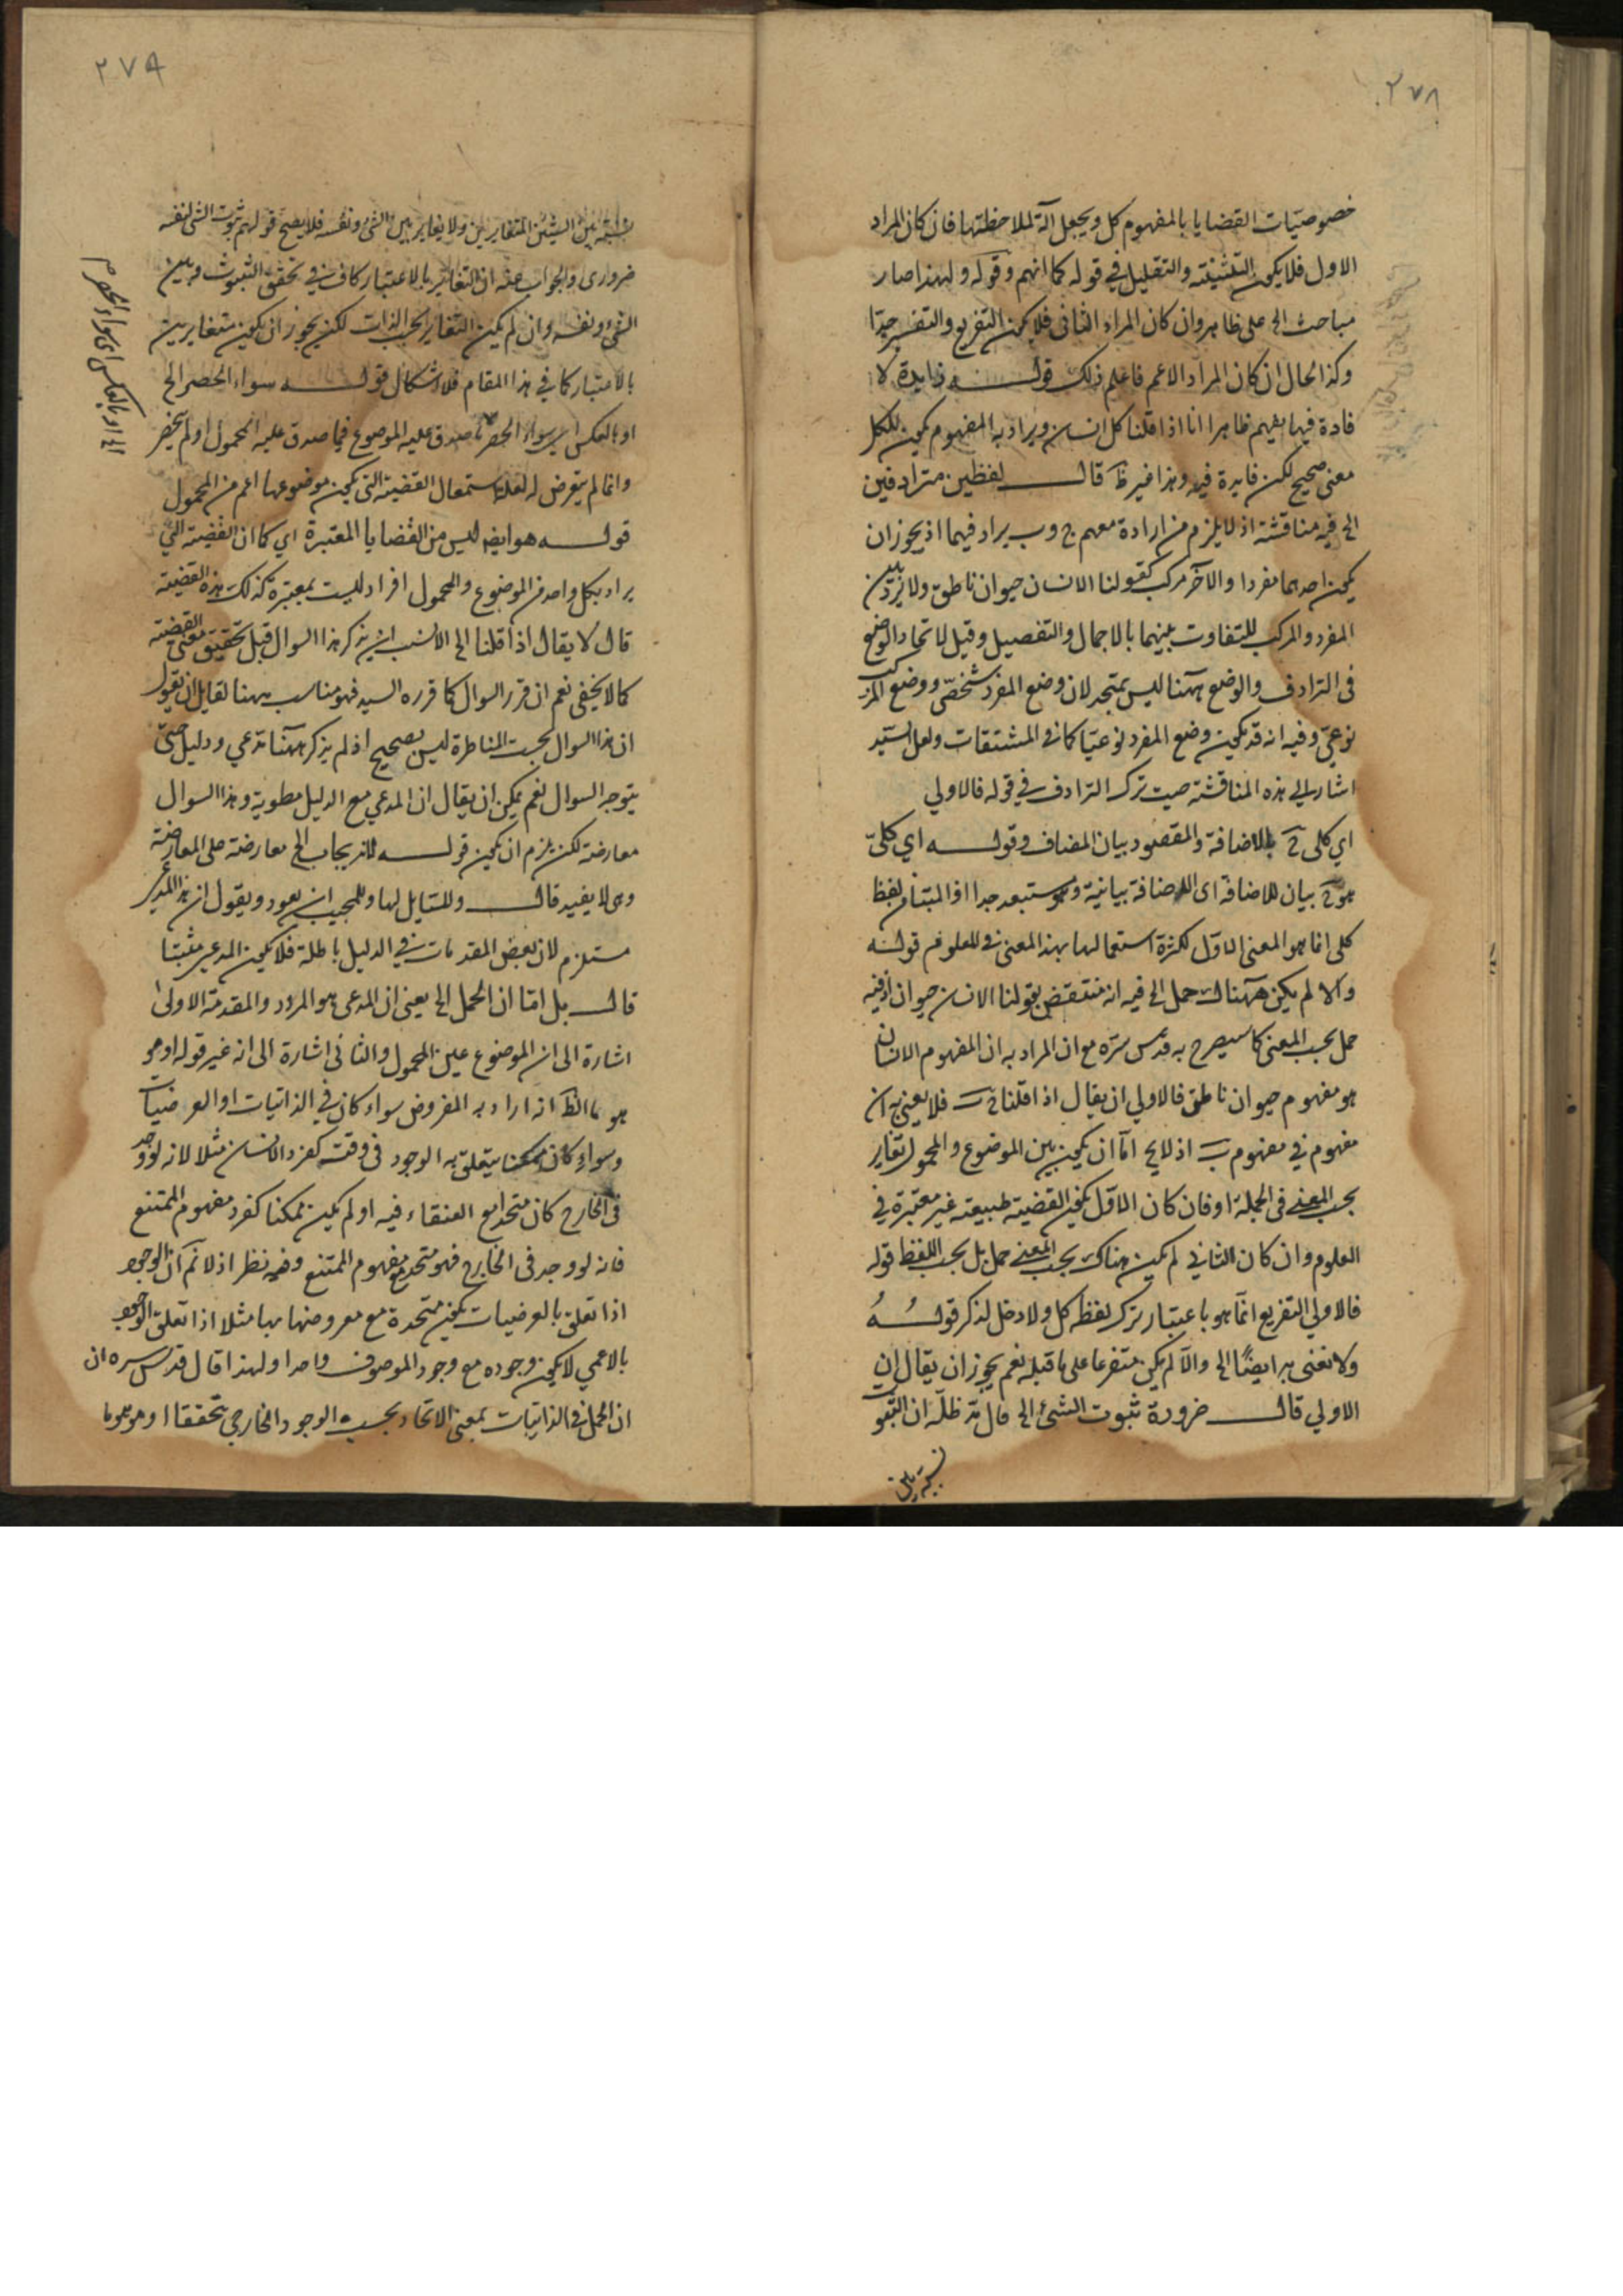 ٢٧٨
خصوصيات القضايا بالمفهوم كل ويجعل آلة لملاحظتها فان كان المراد
الاول فلا يكون التثنية والتقليل في قوله كما انهم وقوله ولهذا صار
مباحث الخ على ظاهره وان كان المراد الثاني فلا يمكن التفريع والتفسير جيدا
وكذا الحال ان كان المراد الاعم فاعلم ذلك قوله زايدة لا
فادة فيها يفهم ظاهرا انا اذا قلنا كل انسان ويراد به المفهوم يكون للكل
معنى صحيح لكن فايدة فيه وهذا غير ظ قال لفظين مترادفين
الخ فيه مناقشة اذ لا يلزم من ارادة مفهوم ج و ب يراد فيهما اذ يجوز ان
يكون احدهما مفردا والآخر مركبا كقولنا الانسان حيوان ناطق ولا ترادف بين
المفرد والمركب للتفاوت بينهما بالاجمال والتفصيل وقيل لاتحاد الوضع
في الترادف والوضع ههنا ليس بمتحد لان وضع المفرد شخصي ووضع المركب
نوعي وفيه انه قد يكون وضع المفرد نوعيا كما في المشتقات ولعل السيد
اشار الى هذه المناقشة حيث ترك الترادف في قوله فالاولى
اي كلي ج بالاضافة والمقصود بيان المضاف وقوله اي كلي
هو ج بيان للاضافة اى الاضافة بيانية وهو مستبعد جدا اذ المتبادر من لفظ
كلي انما هو المعنى الاول لكثرة استعمالها بهذا المعنى في العلوم قوله
والا لم يكن ههناك حمل الخ فيه انه منتقض بقولنا الانسان حيوان اذ فيه
حمل بحسب المعنى كما سيصرح به قدس سره مع ان المراد به ان المفهوم الانسان
هو مفهوم حيوان ناطق فالاولى ان يقال اذا قلنا ج ب فلا يعنى به ان
مفهوم في مفهوم ب اذ لا يخ اما ان يكون بين الموضوع والمحمول تغاير
بحسب المعنى في الجملة او فان كان الاول يكون القضية طبيعية غير معتبرة في
العلوم وان كان الثاني لم يكن هناك بحسب المعنى حمل بل بحسب اللفظ قوله
فالاولى التفريع انما هو باعتبار ترك لفظ كل ولا دخل لذكر قوله
ولا نعنى به ايضًا الخ والا لم يكن متفرعا على ما قبله نعم يجوز ان يقال ان
الاولى قال ضرورة ثبوت الشئ الخ قال مد ظله ان الثبوت
نسبة بين
٢٧٩
نسبة بين الشيئين المتغايرين ولا يغاير بين الشئ ونفسه فلا يصح قولهم ثبوت الشئ لنفسه
ضروري والجواب عنه ان التغاير بالاعتبار كاف في تحقق الثبوت وبين
الشئ ونفسه وان لم يكن التغاير بحسب الذات لكن يجوز ان يكون متغايرين
بالاعتبار كما في هذا المقام فلا اشكال قوله سواء الحصر الخ
او بالعكس اى سواء الحصر ما صدق عليه الموضوع فيما صدق عليه المحمول او لم ينحصر
وانما لم يتعرض له لعدم استعمال القضية التي يكون موضوعها اعم من المحمول
قوله هو ايضا ليس من القضايا المعتبرة اي كما ان القضية التي
يراد بكل واحد من الموضوع والمحمول افراد ليست بمعتبرة كذلك هذه القضية
قال لا يقال اذا قلنا الخ الانسب ان يذكر هذا السوال قبل تحقيق معنى القضية
كما لا يخفى نعم ان قرر السوال كما قرره السيد فهو مناسب ههنا لقايل ان يقول
ان هذا السوال بحسب المناظرة ليس بصحيح اذ لم يذكر ههنا مدعي ودليل حتى
يتوجه السوال نعم يمكن ان يقال ان المدعي مع الدليل مطوية وهذا السوال
معارضة لكن يلزم ان يكون قوله لانه يجاب الخ معارضة على المعارضة
وهى لا يفيد قال وللسايل لها وللمجيب ان يعود ويقول ان هذا المدعى
مستلزم لان بعض المقدمات في الدليل باطلة فلا يكون المدعى مثبتا
قال بل اما ان الحمل الخ يعنى ان المدعى هو المردد والمقدمة الاولى
اشارة الى ان الموضوع عين المحمول والثاني اشارة الى انه غير قوله او هو
هو ما الظ انه اراد به المفروض سواء كان في الذاتيات او العرضيات
وسواء كان ممكنا يتعلق به الوجود في وقت كفرد الانسان مثلا لانه لو وجد
في الخارج كان متحدا مع العنقاء فيه او لم يكن ممكنا كفرد مفهوم الممتنع
فانه لو وجد في الخارج فهو متحد مع مفهوم الممتنع وفيه نظر اذ لا نم ان الوجود
اذا تعلق بالعرضيات يكون متحدة مع معروضها بها مثلا اذا تعلق الوجود
بالاعمى لا يكون وجوده مع وجود الموصوف واحدا ولهذا قال قدس سره ان
ان الحمل في الذاتيات بمعنى الاتحاد بحسب الوجود الخارجي تحققا او موهوما
الخ او بالعكس اى سواء الحصر م